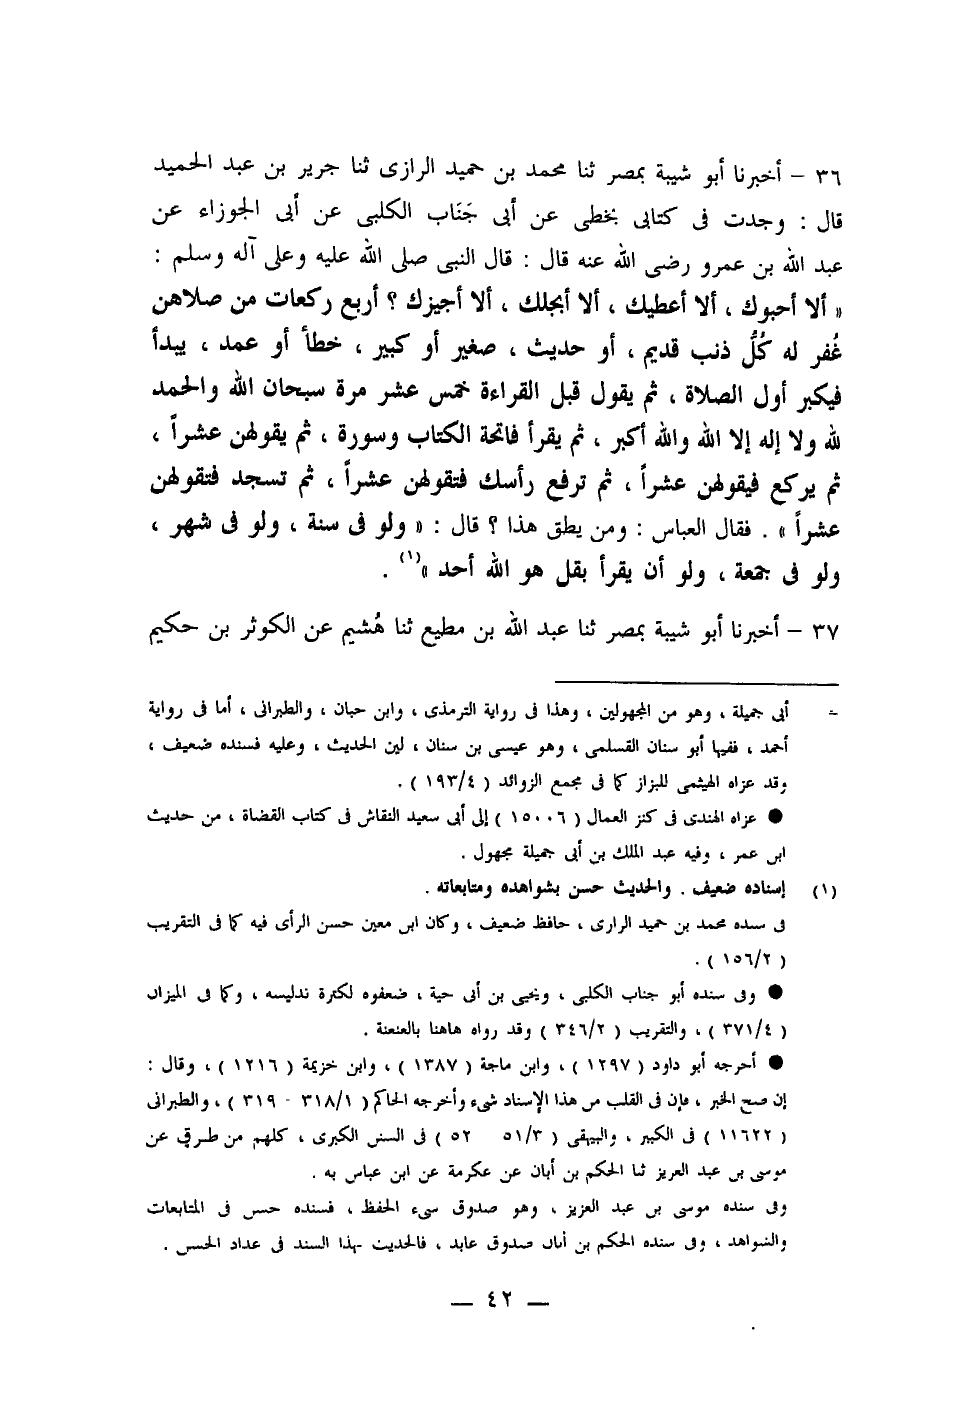 ٣٦ – أخبرنا أبو شيبة بمصر ثنا محمد بن حميد الرازى ثنا جرير بن عبد الحميد
قال : وجدت فى كتابى بخطى عن أبى جَنَاب الكلبى عن أبى الجوزاء عن
عبد الله بن عمرو رضى الله عنه قال : قال النبى صلى الله عليه وعلى آله وسلم :
« ألا أحبوك ، ألا أعطيك ، ألا أبجلك ، ألا أجيزك ؟ أربع ركعات من صلاهن
غُفر له كُلُّ ذنب قديم ، أو حديث ، صغير أو كبير ، خطأ أو عمد ، يبدأ
فيكبر أول الصلاة ، ثم يقول قبل القراءة خمس عشر مرة سبحان الله والحمد
لله ولا إله إلا الله والله أكبر ، ثم يقرأ فاتحة الكتاب وسورة ، ثم يقولهن عشراً ،
ثم يركع فيقولهن عشراً ، ثم ترفع رأسك فتقولهن عشراً ، ثم تسجد فتقولهن
عشراً » . فقال العباس : ومن يطق هذا ؟ قال : « ولو فى سنة ، ولو فى شهر ،
ولو فى جمعة ، ولو أن يقرأ بقل هو الله أحد »(١) .
٣٧ – أخبرنا أبو شيبة بمصر ثنا عبد الله بن مطيع ثنا هُشيم عن الكوثر بن حكيم
= أبى جميلة ، وهو من المجهولين ، وهذا فى رواية الترمذى ، وابن حبان ، والطبرانى ، أما فى رواية
أحمد ، ففيها أبو سنان القسلمى ، وهو عيسى بن سنان ، لين الحديث ، وعليه فسنده ضعيف ،
وقد عزاه الهيثمى للبزار كما فى مجمع الزوائد ( ١٩٣/٤ ) .
● عزاه الهندى فى كنز العمال ( ١٥٠٠٦ ) إلى أبى سعيد النقاش فى كتاب القضاة ، من حديث
ابن عمر ، وفيه عبد الملك بن أبى جميلة مجهول .
(١) إسناده ضعيف . والحديث حسن بشواهده ومتابعاته .
فى سنده محمد بن حميد الرازى ، حافظ ضعيف ، وكان ابن معين حسن الرأى فيه كما فى التقريب
( ١٥٦/٢ ) .
● وفى سنده أبو جناب الكلبى ، ويحيى بن أبى حية ، ضعفوه لكثرة تدليسه ، وكما فى الميزان
( ٣٧١/٤ ) ، والتقريب ( ٣٤٦/٢ ) وقد رواه هاهنا بالعنعنة .
● أخرجه أبو داود ( ١٢٩٧ ) ، وابن ماجة ( ١٣٨٧ ) ، وابن خزيمة ( ١٢١٦ ) ، وقال :
إن صح الخبر ، فإن فى القلب من هذا الإسناد شىء وأخرجه الحاكم ( ٣١٨/١ - ٣١٩ ) ، والطبرانى
( ١١٦٢٢ ) فى الكبير ، والبيهقى ( ٥١/٣ ٥٢ ) فى السنن الكبرى ، كلهم من طرق عن
موسى بن عبد العزيز ثنا الحكم بن أبان عن عكرمة عن ابن عباس به .
وفى سنده موسى بن عبد العزيز ، وهو صدوق سىء الحفظ ، فسنده حسن فى المتابعات
والشواهد ، وفى سنده الحكم بن أبان صدوق عابد ، فالحديث بهذا السند فى عداد الحسن .
— ٤٢ —